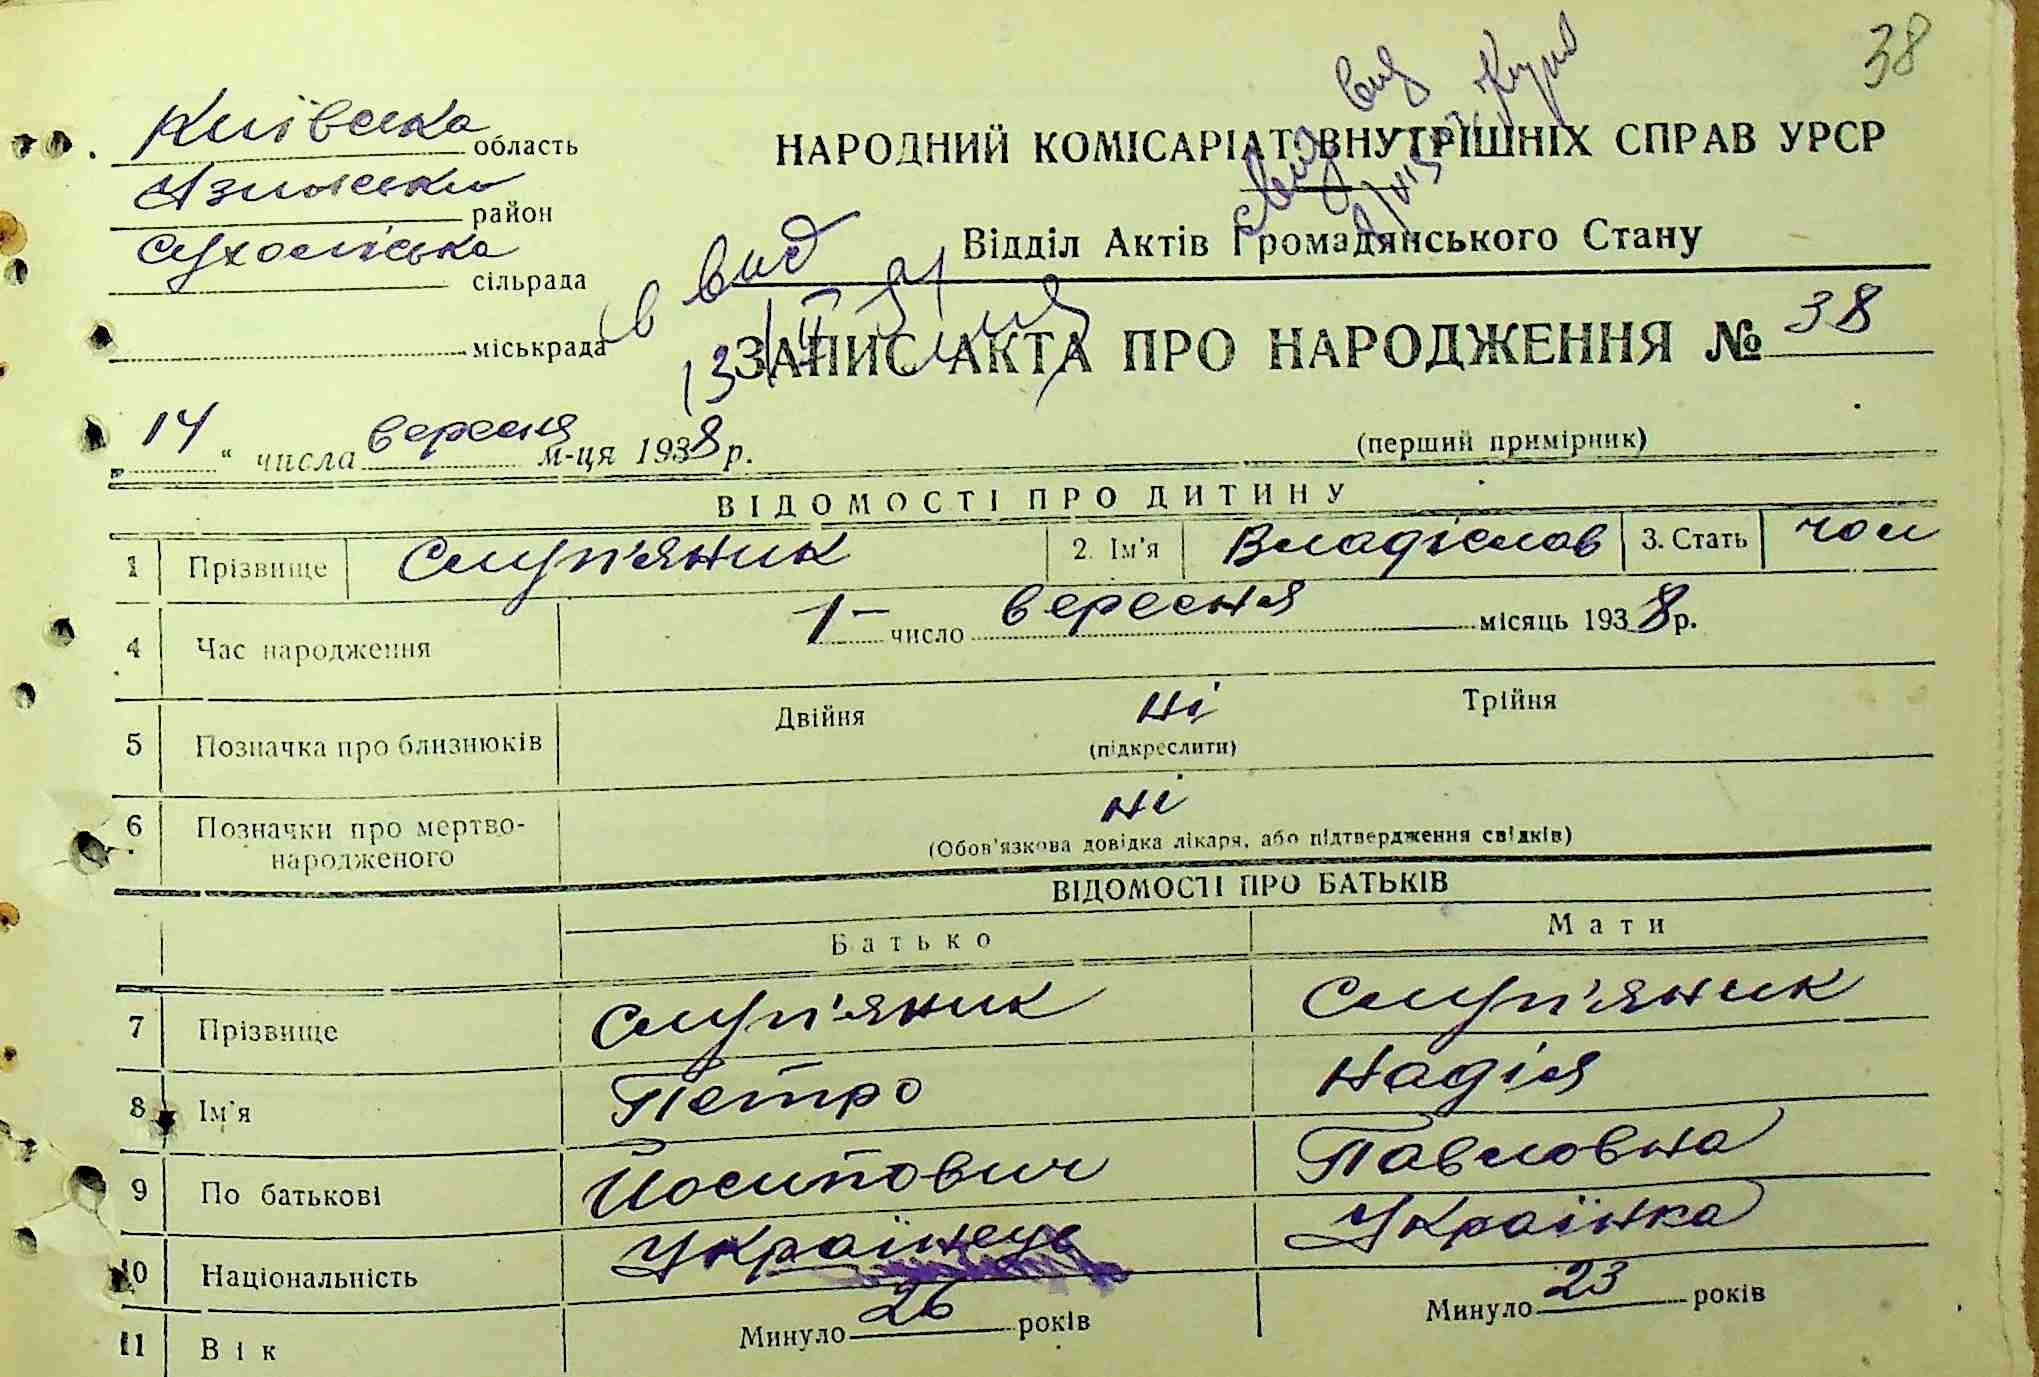 38
Київська область
район
Сухоліська сільрада
міськрада
НАРОДНИЙ КОМІСАРІАТ ВНУТРІШНІХ СПРАВ УРСР
Відділ Актів Громадянського Стану
ЗАПИС АКТА ПРО НАРОДЖЕННЯ № 38
„ 14 “ числа вересня м-ця 1938 р.
(перший примірник)
ВІДОМОСТІ ПРО ДИТИНУ
1 Прізвище Слуп'яник 2. Ім'я Владіслав 3. Стать чол
4 Час народження 1- число вересня місяць 1938 р.
5 Позначка про близнюків Двійня ні Трійня
(підкреслити)
6 Позначки про мертво-
народженого ні
(Обов'язкова довідка лікаря, або підтвердження свідків)
ВІДОМОСТІ ПРО БАТЬКІВ
Батько Мати
7 Прізвище Слуп'яник Слуп'яник
8 Ім'я Петро Надія
9 По батькові Йосипович Павловна
10 Національність Українець Українка
11 Вік Минуло 26 років Минуло 23 років